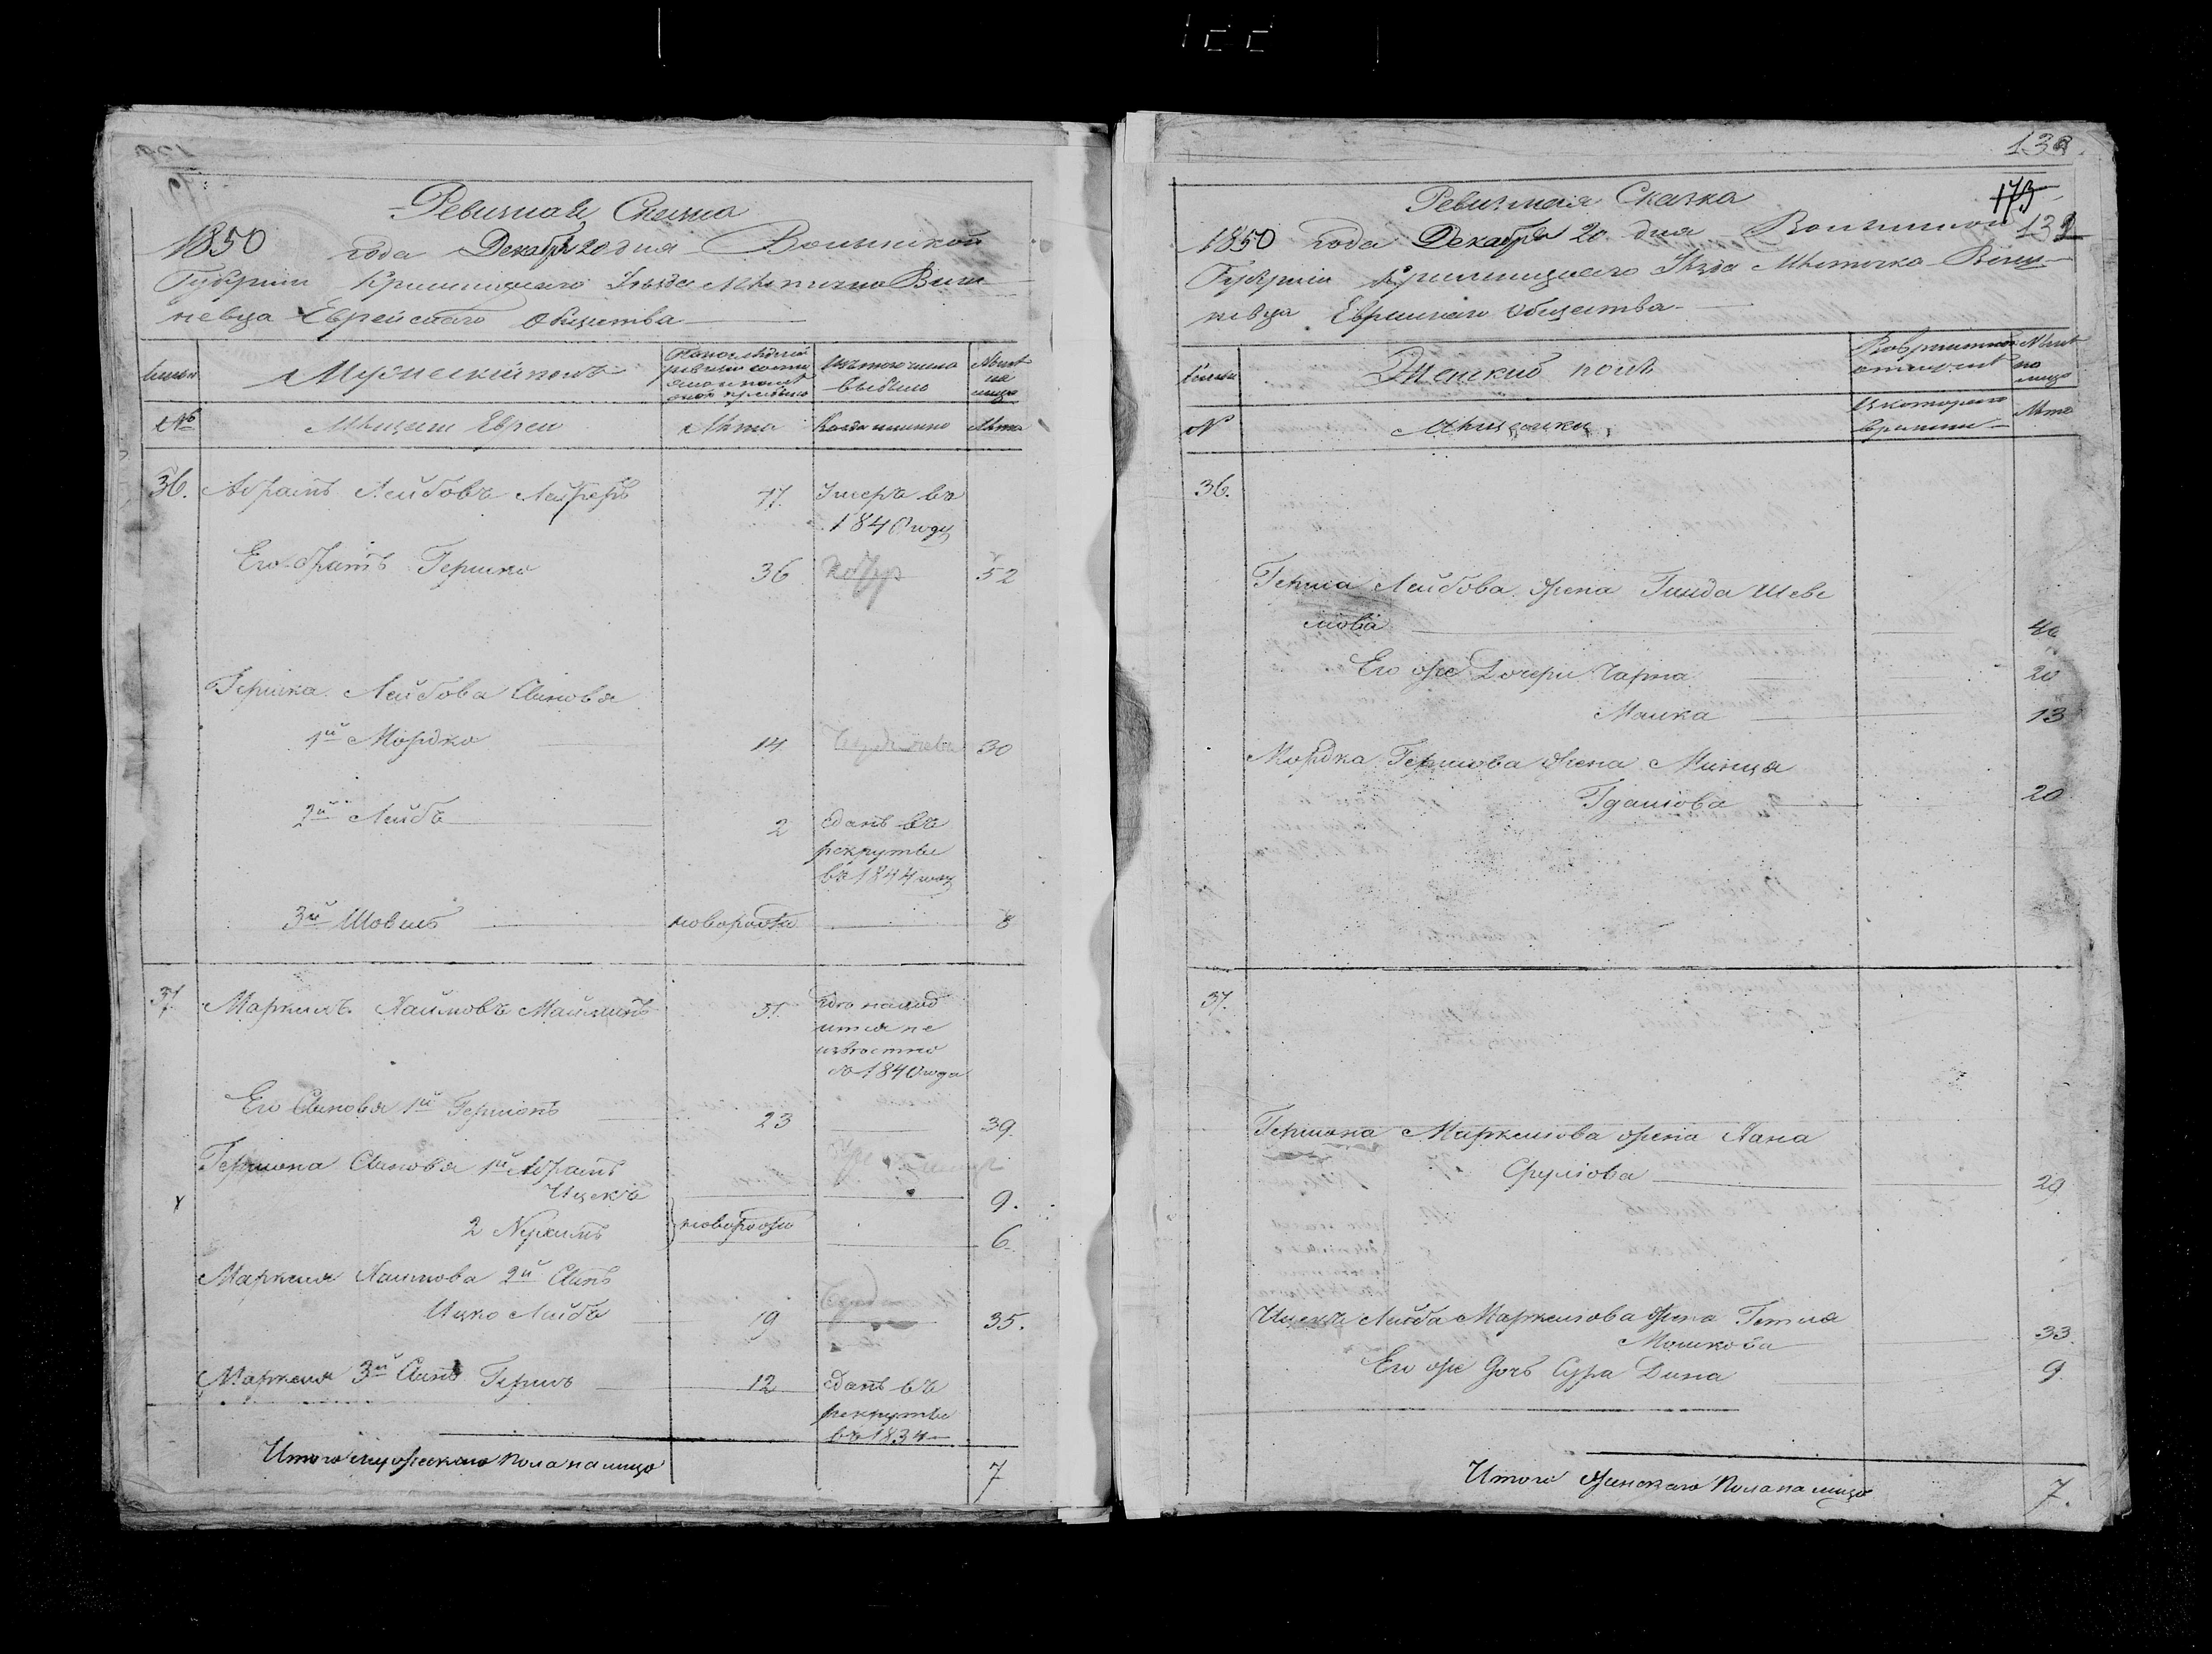 Ревизная Сказка
1850 года Декабря 20 дня Волынской
Губернии Кременецкаго Уезда Местечка Виш
невца Еврейскаго Общества
Семьи
Мужескій полъ
Изъ того числа
выбыло
Ныне
на
лицо
№
Мещане Евреи
Лета
Когда именно
Лета
36. Абрамъ Лейбовъ 77. Умеръ въ
1840 году
Его братъ Гершко 36 52
Гершка Лейбова Сыновья
1й Мордко 14 30
2й Лейба 2 сданъ въ
рекруты
въ 1844 году
3й Шовель новорожд 8
37. Маркель Хаимовъ 51. где наход
ится не
известно
съ 1840 года
Его Сыновья 1й Гершонъ 23 39.
Гершона Сыновья 1й Абрамъ
Ицекъ 9.
2 Нухимъ новорожд 6.
Маркеля Хаимова 2й Сынъ
Ицко Лейба 19 35.
Маркеля 3й Сынъ Гершъ 12 сданъ въ
рекруты
въ 1834
Итого мужескаго пола на лицо 7
138
173
132
Ревизская Сказка
1850 года Декабря 20 дня Волынской
Губерніи Кременецкаго Уезда Местечка Виш
невца Еврейскаго Общества
Семьи
Женскій полъ
Ныне
на
лицо
№
Мещанки
Лета
36.
Герша Лейбова жена Гинда Шеве
лова 46
Его же Дочери Чарна 20
Малка 13
Мордка Гершова жена
20
37.
Гершона Маркелова жена Хана
Срулова 29
Ицека Лейба Маркелова жена
Мошкова 33.
Его же дочь Сура Дина 9.
Итого женскаго пола на лицо 7.